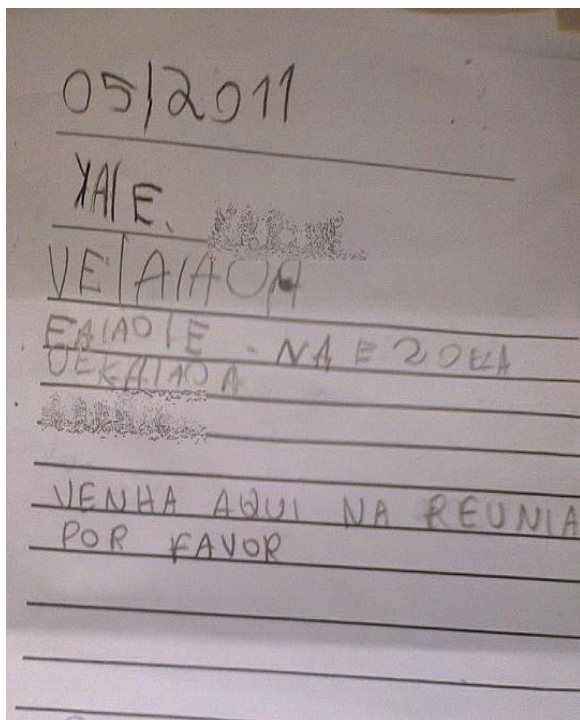 05/2011
YAIE.
VEIAIAOA
EAIAOIE - NA E 2OEA
OEKAIAOA
VENHA AQUI NA REUNIA
POR FAVOR